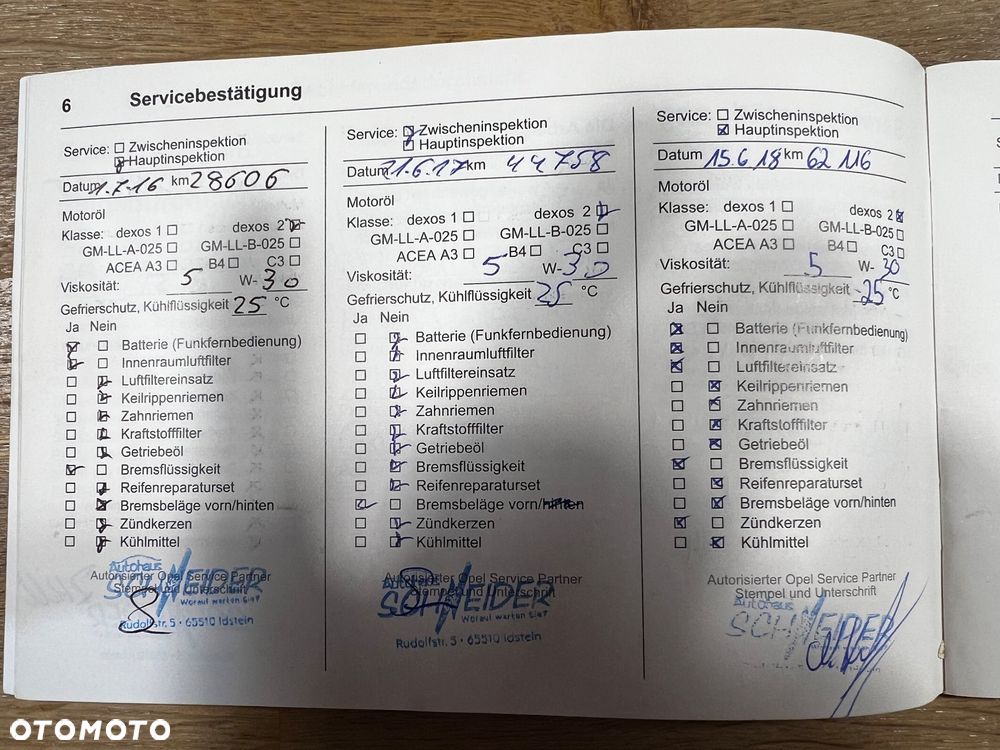 6 Servicebestätigung
Service: Zwischeninspektion
Hauptinspektion
Datum 1.7.16 km 28606
Motoröl
Klasse: dexos 1 dexos 2
GM-LL-A-025 GM-LL-B-025
ACEA A3 B4 C3
Viskosität: 5 W- 30
Gefrierschutz, Kühlflüssigkeit 25 °C
Ja Nein
Batterie (Funkfernbedienung)
Innenraumluftfilter
Luftfiltereinsatz
Keilrippenriemen
Zahnriemen
Kraftstofffilter
Getriebeöl
Bremsflüssigkeit
Reifenreparaturset
Bremsbeläge vorn/hinten
Zündkerzen
Kühlmittel
Autorisierter Opel Service Partner
Stempel und Unterschrift
Autohaus
SCHNEIDER
Worauf warten Sie?
Rudolfstr. 5 · 65510 Idstein
Service: Zwischeninspektion
Hauptinspektion
Datum 21.6.17 km 44758
Motoröl
Klasse: dexos 1 dexos 2
GM-LL-A-025 GM-LL-B-025
ACEA A3 B4 C3
Viskosität: 5 W- 30
Gefrierschutz, Kühlflüssigkeit 25 °C
Ja Nein
Batterie (Funkfernbedienung)
Innenraumluftfilter
Luftfiltereinsatz
Keilrippenriemen
Zahnriemen
Kraftstofffilter
Getriebeöl
Bremsflüssigkeit
Reifenreparaturset
Bremsbeläge vorn/hinten
Zündkerzen
Kühlmittel
Autorisierter Opel Service Partner
Stempel und Unterschrift
Autohaus
SCHNEIDER
Worauf warten Sie?
Rudolfstr. 5 · 65510 Idstein
Service: Zwischeninspektion
Hauptinspektion
Datum 15.6.18 km 62 116
Motoröl
Klasse: dexos 1 dexos 2
GM-LL-A-025 GM-LL-B-025
ACEA A3 B4 C3
Viskosität: 5 W- 30
Gefrierschutz, Kühlflüssigkeit -25 °C
Ja Nein
Batterie (Funkfernbedienung)
Innenraumluftfilter
Luftfiltereinsatz
Keilrippenriemen
Zahnriemen
Kraftstofffilter
Getriebeöl
Bremsflüssigkeit
Reifenreparaturset
Bremsbeläge vorn/hinten
Zündkerzen
Kühlmittel
Autorisierter Opel Service Partner
Stempel und Unterschrift
Autohaus
SCHNEIDER
OTOMOTO